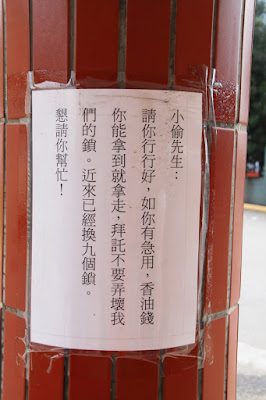 小偷先生：
請你行行好，如你有急用，香油錢
你能拿到就拿走，拜託不要弄壞我
們的鎖。近來已經換九個鎖。
懇請你幫忙！